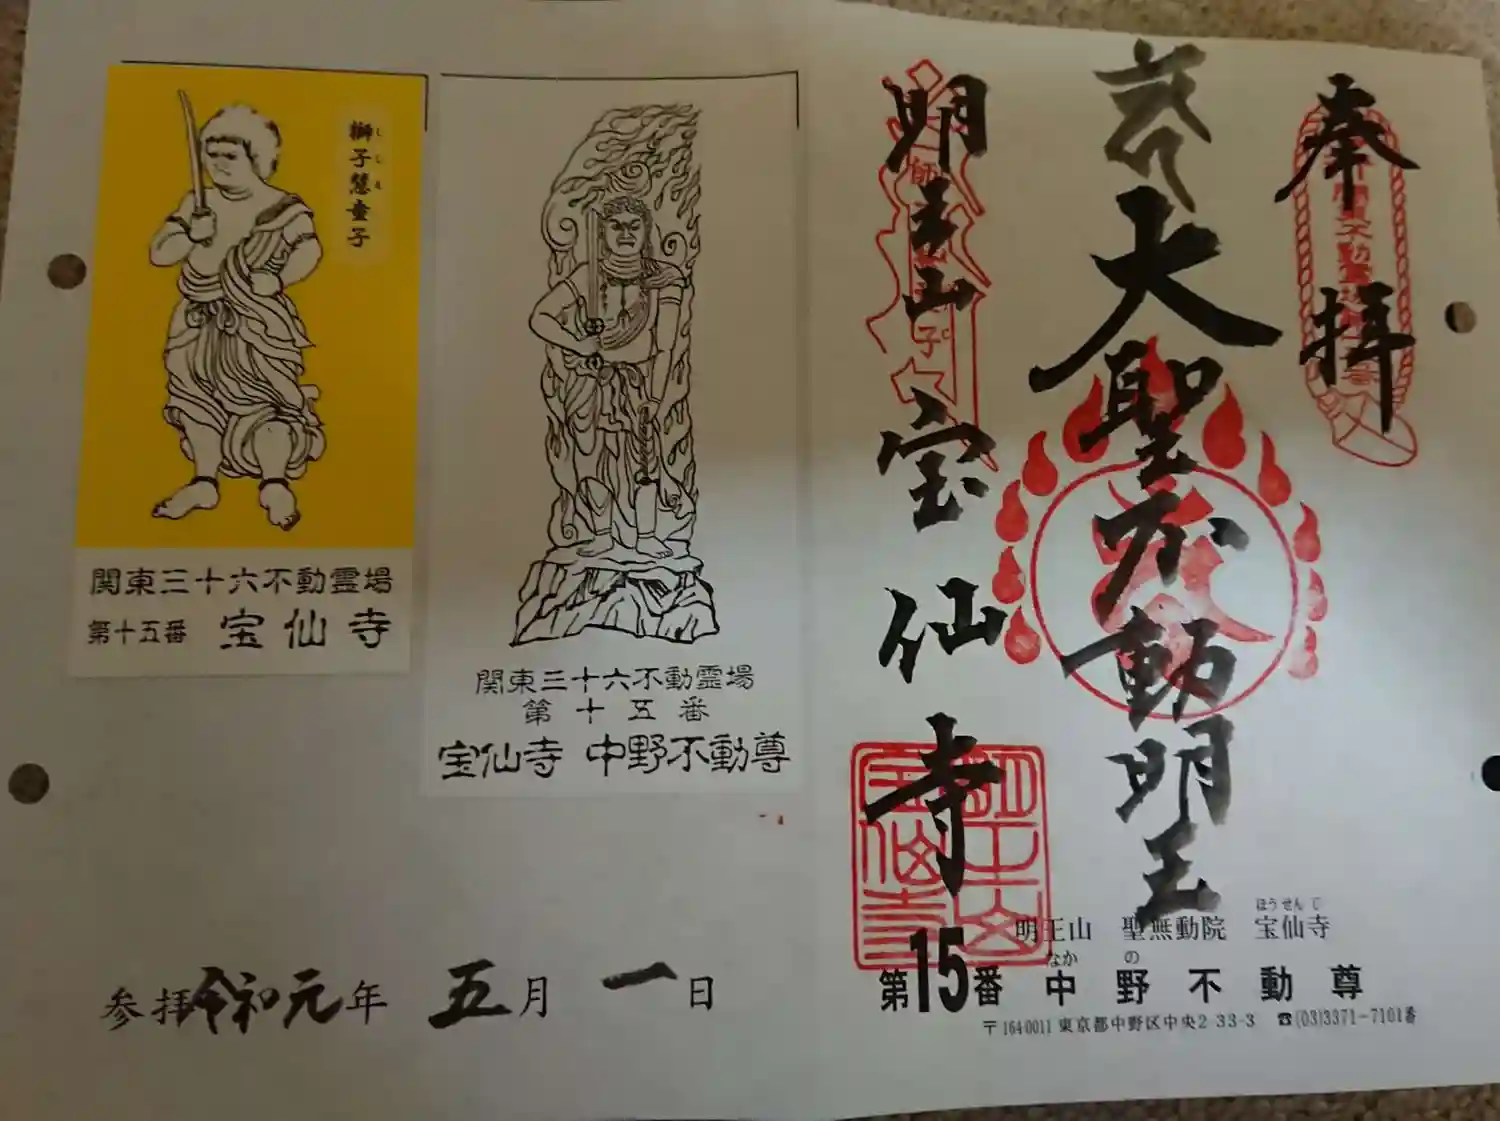 奉拝
大聖不動明王
明王山
宝仙寺
明王山　聖無動院　宝仙寺
ほうせんじ
第15番　中野不動尊
なかの
〒164-0011 東京都中野区中央2-33-3　☎(03)3371-7101番
関東三十六不動霊場
第十五番
宝仙寺　中野不動尊
獅子慧童子
ししえ
関東三十六不動霊場
第十五番　宝仙寺
参拝令和元年　五月　一日